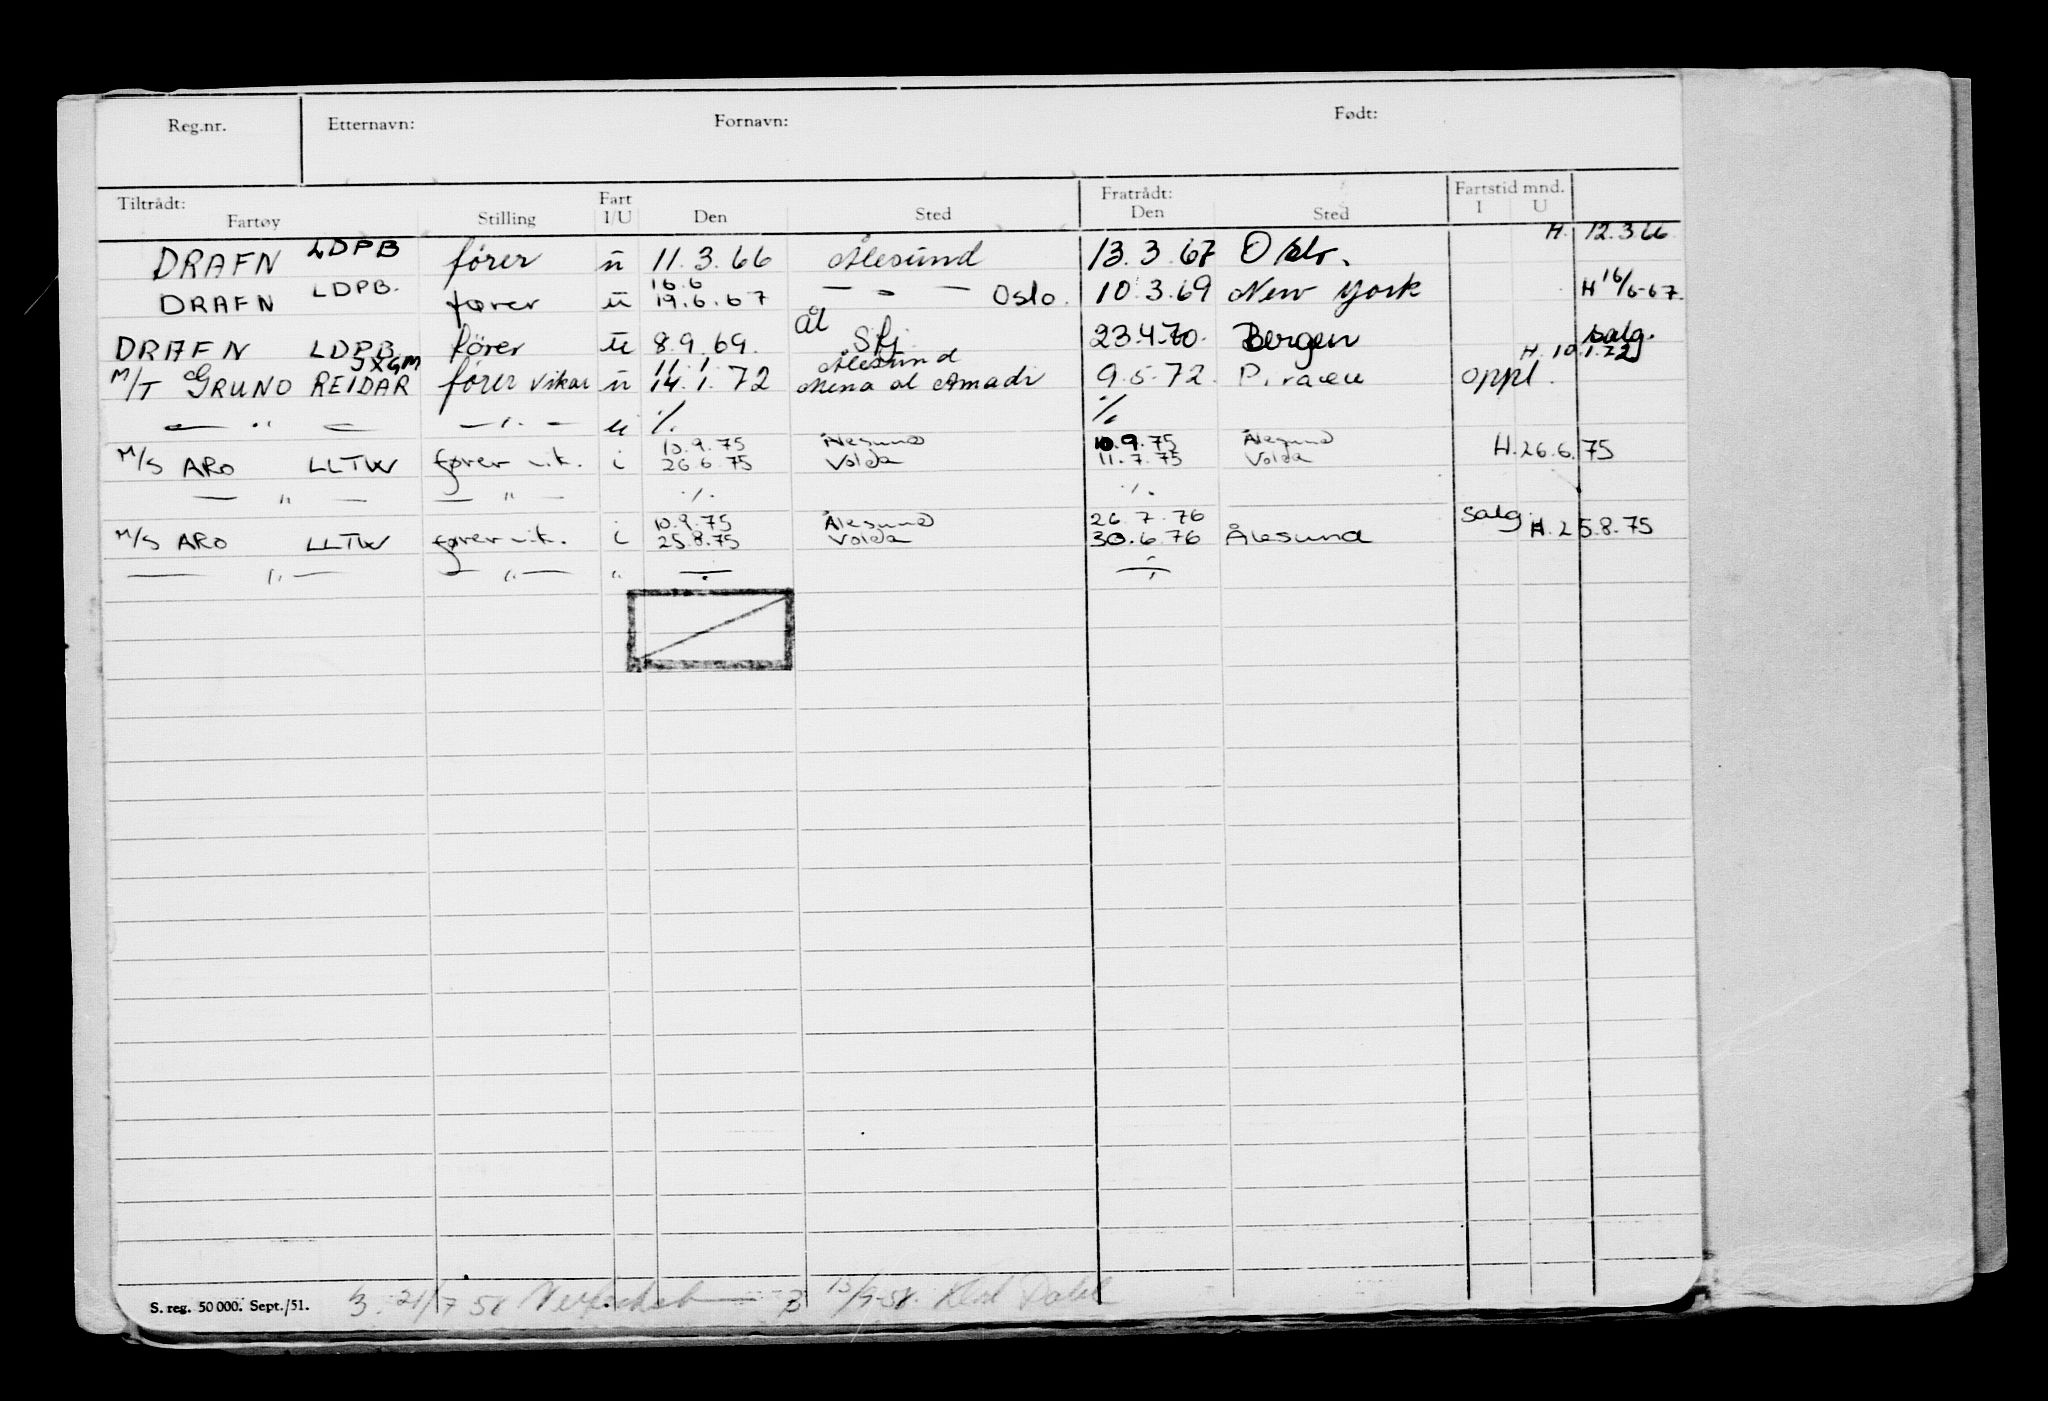 Reg.nr. Etternavn: Fornavn: Født:
Tiltrådt: Fartøy Stilling Fart I/U Den Sted Fratrådt: Den Sted Fartstid mnd. I U
H. 12.3.66
DRAFN LDPB fører u 11.3.66 Ålesund 13.3.67 Oslo.
16.6
DRAFN LDPB. fører u 19.6.67 — " — Oslo. 10.3.69 New York H 16/6-67.
Ål
DRAFN LDPB fører u 8.9.69. Skj 23.4.70. Bergen salg.
JXGM 11.1 Ålesund H.10.1.72
M/T GRUNO REIDAR fører vikar u 14.1.72 Mena al Amadi 9.5.72. Piraeu oppl.
— " — — " — u ./. ./.
10.9.75 Ålesund 10.9.75 Ålesund
M/S ARO LLTW fører v.k. i 26.6.75 Volda 11.7.75 Volda H.26.6.75
— " — — " — ./. ./.
10.9.75 Ålesund 26.7.76 salg.
M/S ARO LLTW fører v.k. i 25.8.75 Volda 30.6.76 Ålesund H.25.8.75
— " — — " — " ./. ./.
S. reg. 50 000. Sept./51. 21/7 58 Dahl